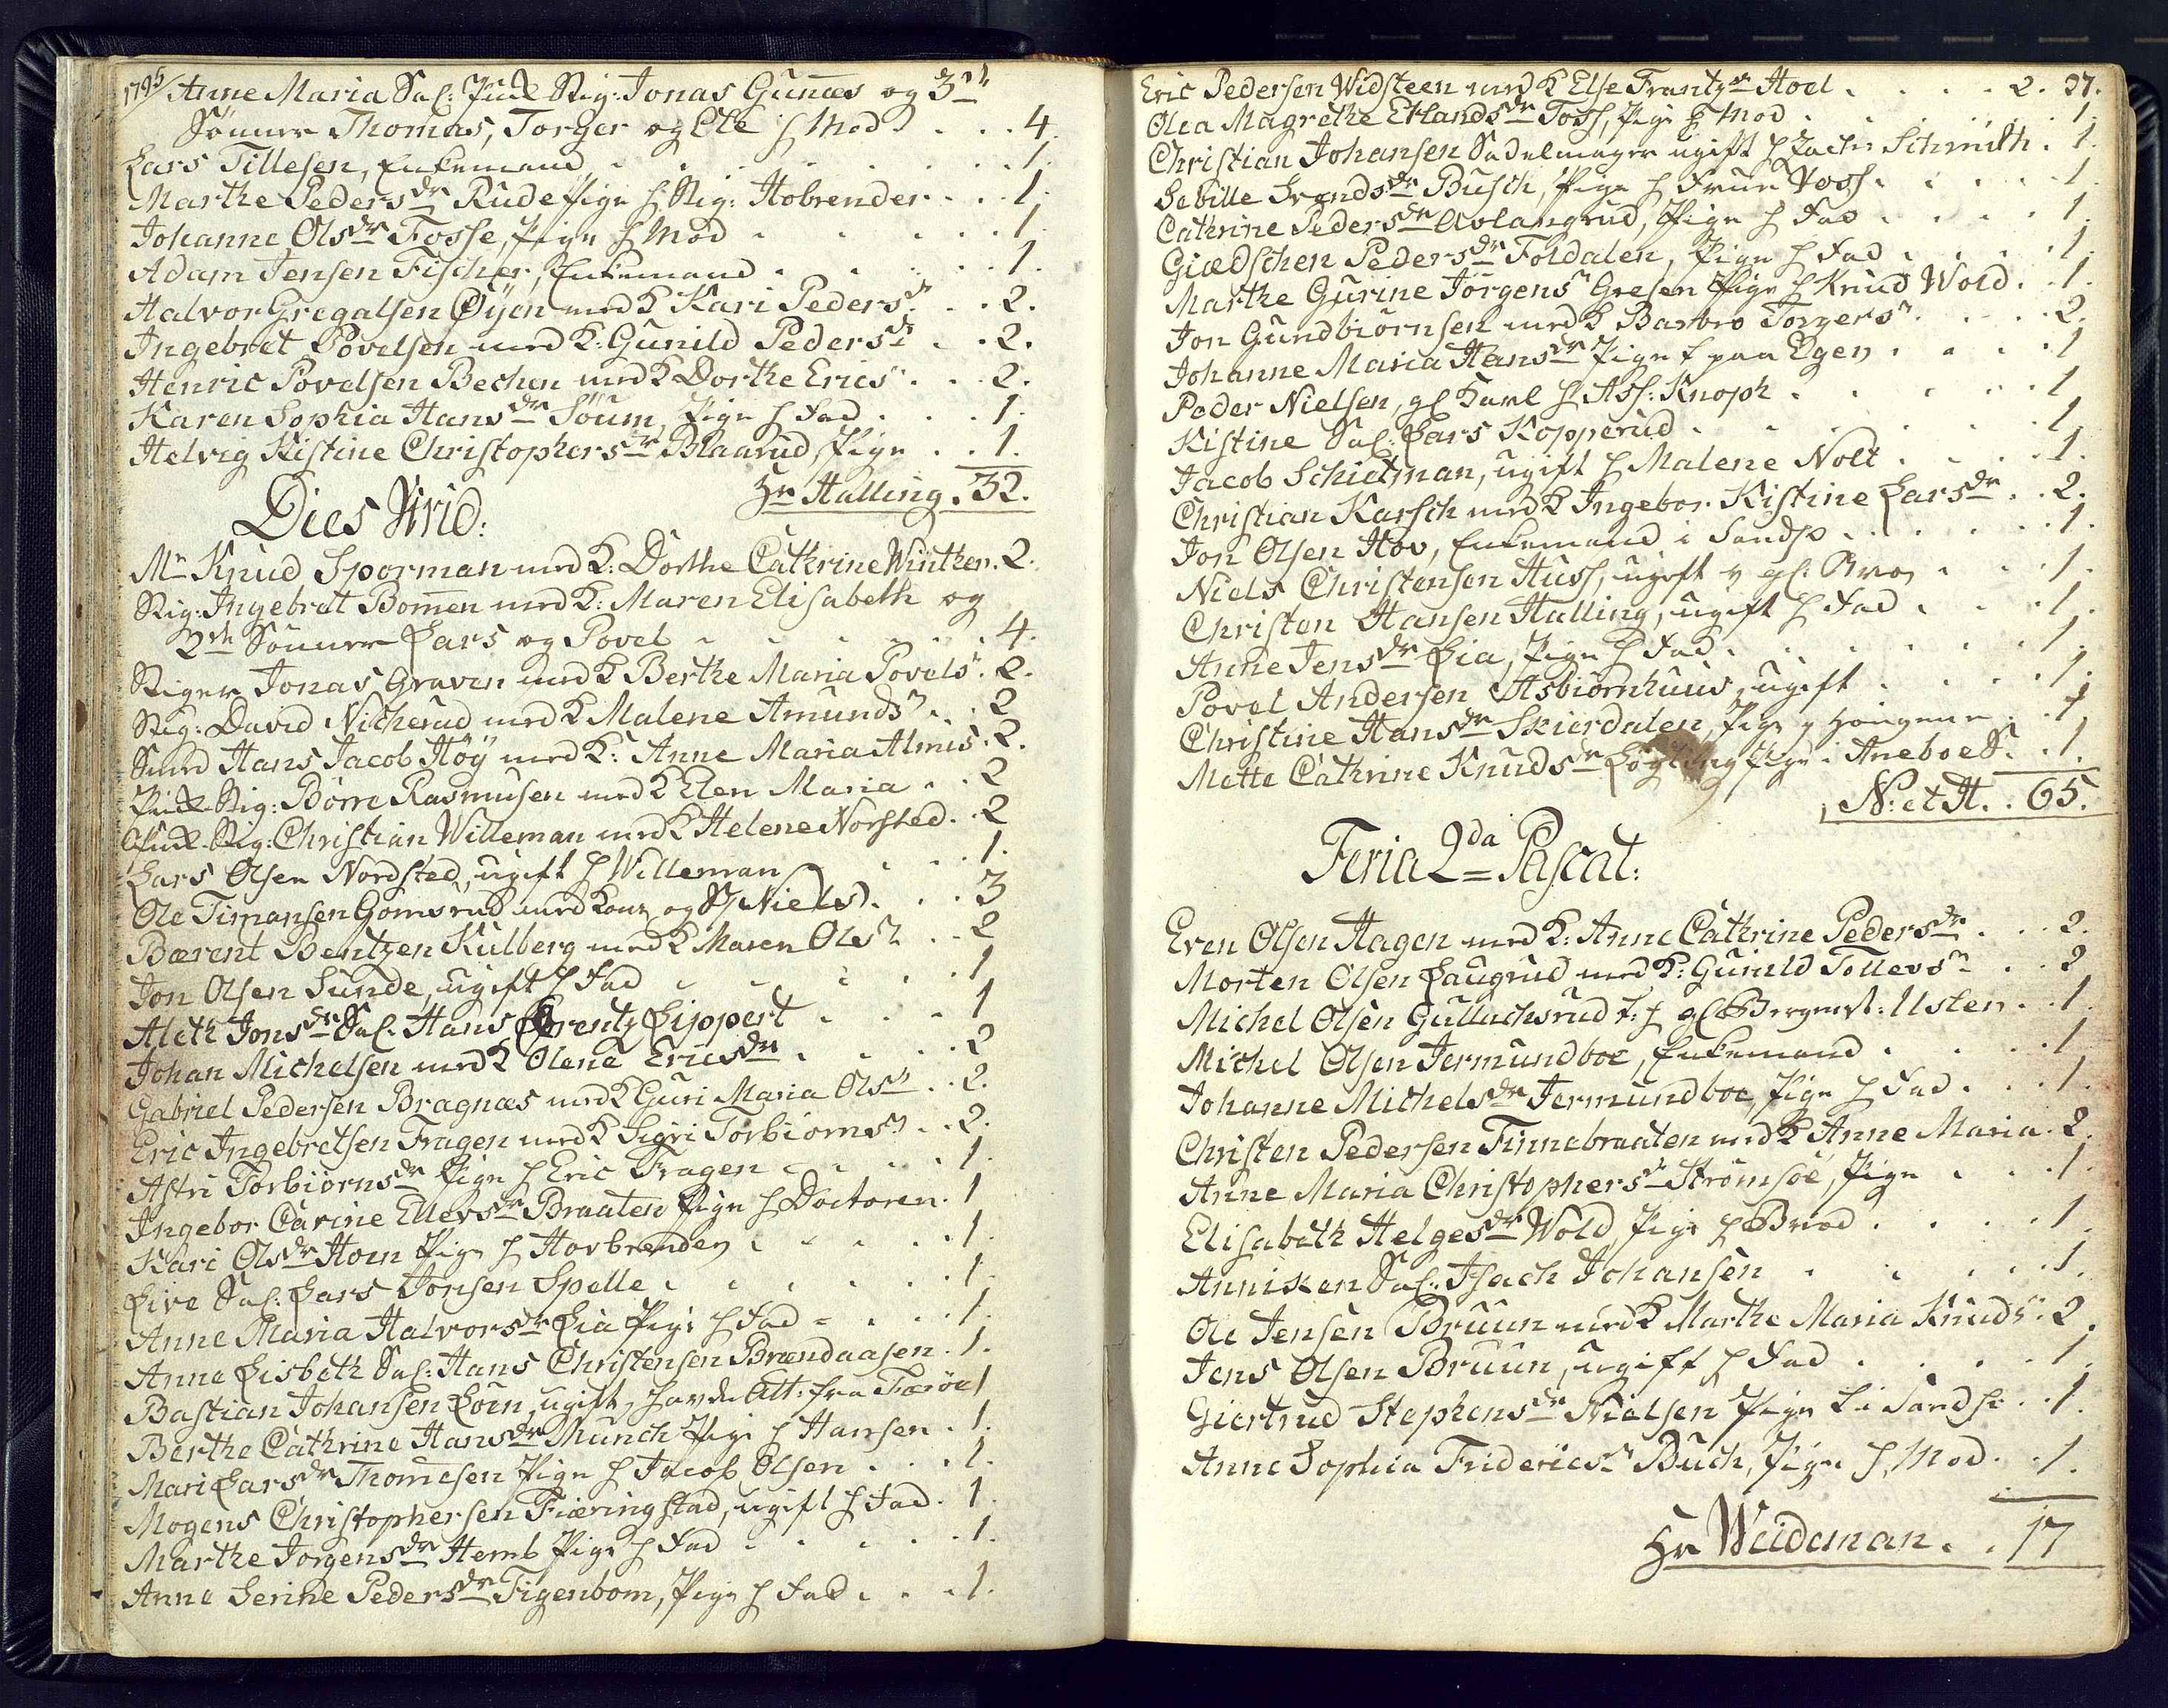 1795/ Anne Maria Sal: Puk Stig: Jonas Gunnæs og 3de
Sønner Thomas, Torger og Ole h Mod . . . 4.
Lars Tillesen, Enkemand . . . 1.
Marthe Pedersdr Rude Pige h Stig: Hobrender . . . 1.
Johanne Olsdr Fosse, Pige h Mod . . . 1.
Adam Jensen Fischer, Enkemand . . . 1.
Halvor Gregalsen Øÿen med K Kari Pedersdr . . 2.
Ingebret Povelsen med K: Gunild Pedersdr . . 2.
Henric Povelsen Bechen med K Dorthe Erics . . . 2.
Karen Sophia Hansdr Søum, Pige h Fad . . . 1.
Helvig Kistine Christophersdr Blaarud, Pige . . 1.
Hr Halling . 32.
Dies Virid:
Mr Knud Sporman med K: Dorthe Cathrine Winther. 2.
Stig: Ingebret Bomen med K: Maren Elisabeth og
2de Sønner Lars og Povel . . . 4.
Stiger Jonas Graven med K Berthe Maria Povels. 2.
Stig: David Nicherud med K Malene Amunds . . 2
Smed Hans Jacob Høÿ med K: Anne Maria Almis. 2.
Puk Stig: Børre Rasmusen med K Elen Maria . . 2
Puk Stig: Christian Willeman med K Helene Norsted . . 2
Lars Olsen Nordsted, ugift h Willeman . . . 1.
Ole Timansen Gomsrud med Kone og S Niels . . . 3
Bærent Bentzen Kulberg med K Maren Ols . . 2
Jon Olsen Sunde, ugift h Fad . . . 1
Aleth Jonsdr Sal: Hans Lorentz Lippert . . . 1
Johan Michelsen med K Olene Ericsdr . . . 2
Gabriel Pedersen Bragnæs med K Guri Maria Ols . . 2.
Eric Ingebretsen Fragen med K Sigri Torbiørns . . 2.
Astri Torbiørnsdr Pige h Eric Fragen . . . 1.
Ingebor Carine Ellersdr Braaten Pige h Doctoren. 1
Kari Olsdr Horn Pige h Hovbrenden . . . 1.
Live Sal: Lars Jonsen Spelle . . . 1.
Anne Maria Halvorsdr Lia Pige h Fad . . . 1.
Anne Lisbeth Sal: Hans Christensen Brændaasen . 1.
Bastian Johansen Loin, ugift, havde Att: fra Færøe 1
Berthe Cathrine Hansdr Munch Pige h Hansen . 1.
Mari Larsdr Thomesen Pige h Jacob Olsen . . . 1.
Mogens Christophersen Fiæringstad, ugift h Fad. 1.
Marthe Jorgensdr Hemb Pige h Fad . . . 1.
Anne Serine Pedersdr Figenbom, Pige h Fad . . . 1.
Eric Pedersen Widsteen med K Else Frantzdr Hoel . . . 2. 37.
Olea Magrethe Erlandsdr Foss, Pige h Mod . . . 1.
Christian Johansen Sadelmager ugift h Zachr Schmith . 1.
Sebille Svendsdr Busch, Pige h Frue Voss . . . 1.
Cathrine Pedersdr Avlangrud, Pige h Fad . . . 1.
Giædschen Pedersdr Foldalen, Pige h Fad . . . 1.
Marthe Gurine Jørgens Gresen Pige h Knud Wold . . 1.
Jon Gundbiørnsen med K Barbro Torgers . . . 2.
Johanne Maria Hansdr Pige f paa Egen . . . 1
Peder Nielsen, gl Karl h Ass: Knoph . . . 1
Kistine Sal: Lars Kopperud . . . 1
Jacob Schietman, ugift h Malene Nolt . . . 1.
Christian Karsch med K Ingebor Kistine Larsdr . . 2.
Jon Olsen Hov, Enkemand i Sandsv . . . 1.
Niels Christensen Huss, ugift . . . 1.
Christen Hansen Halling, ugift h Fad . . . 1.
Anne Jensdr Lia, Pige h Fad . . . 1
Povel Andersen Asbiørnhuus, ugift . . . 1.
Christine Hansdr Skierdalen, Pige . . . 1.
Mette Cathrine Knudsdr Pige i Aneboe . . 1.
N: et H . . 65.
Feria 2da Pascat:
Even Olsen Hagen med K: Anne Cathrine Pedersdr . . . 2.
Morten Olsen Laugrud med K: Gunild Tollevs . . 2
Michel Olsen Gullachsrud f: h gl Bergmst: Usler . . 1.
Michel Olsen Jermundboe, Enkemand . . . 1
Johanne Michelsdr Jermundboe, Pige h Fad . . . 1.
Christen Pedersen Finnebraaten med K Anne Maria . 2.
Anne Maria Christophersdr Strømsøe, Pige . . . 1.
Elisabeth Helgesdr Wold, Pige h Brod . . . 1.
Annisken Sal: Isach Johansen . . . 1.
Ole Jensen Bruun med K Marthe Maria Knuds . 2.
Jens Olsen Bruun, ugift h Fad . . . 1.
Giertrud Stephensdr Nielsen Pige f i Sandsv . . 1.
Anne Sophia Fridericsdr Buch, Pige h Mod . . 1.
Hr Weideman . . 17